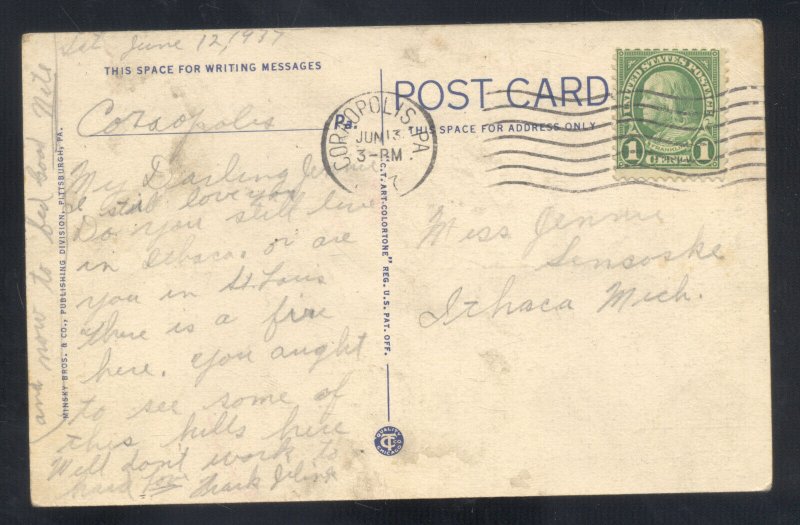 Sat June 12, 1937
THIS SPACE FOR WRITING MESSAGES
Coraopolis Pa.
My Darling Jennie
I still love you
Do you still live
in Ithaca. or are
you in St. Louis
there is a fire
here. you aught
to see some of
this hills here
Well dont work to
hard
and now to bed Good Nite
MINSKY BROS. & CO., PUBLISHING DIVISION, PITTSBURGH, PA.
POST CARD
THIS SPACE FOR ADDRESS ONLY
CORAOPOLIS, PA.
JUN 13
3-PM
7
UNITED STATES POSTAGE
FRANKLIN
1 CENT 1
C.T. ART-COLORTONE" REG. U.S. PAT. OFF.
QUALITY
CT
CHICAGO
Miss Jennie
Sencoske
Ithaca Mich.